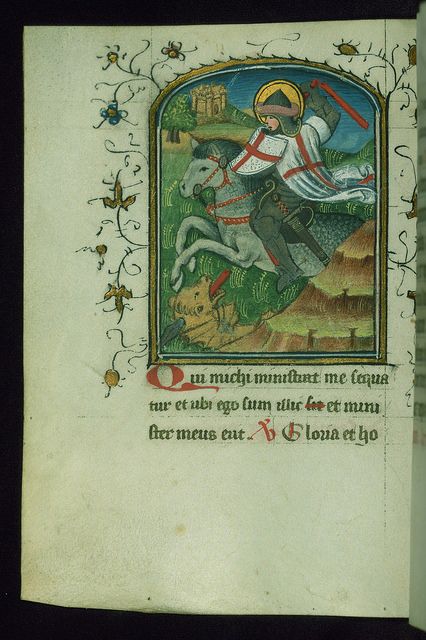 Qui michi ministrat me sequa
tur et ubi ego sum illic et mini
ster meus erit. Gloria et ho